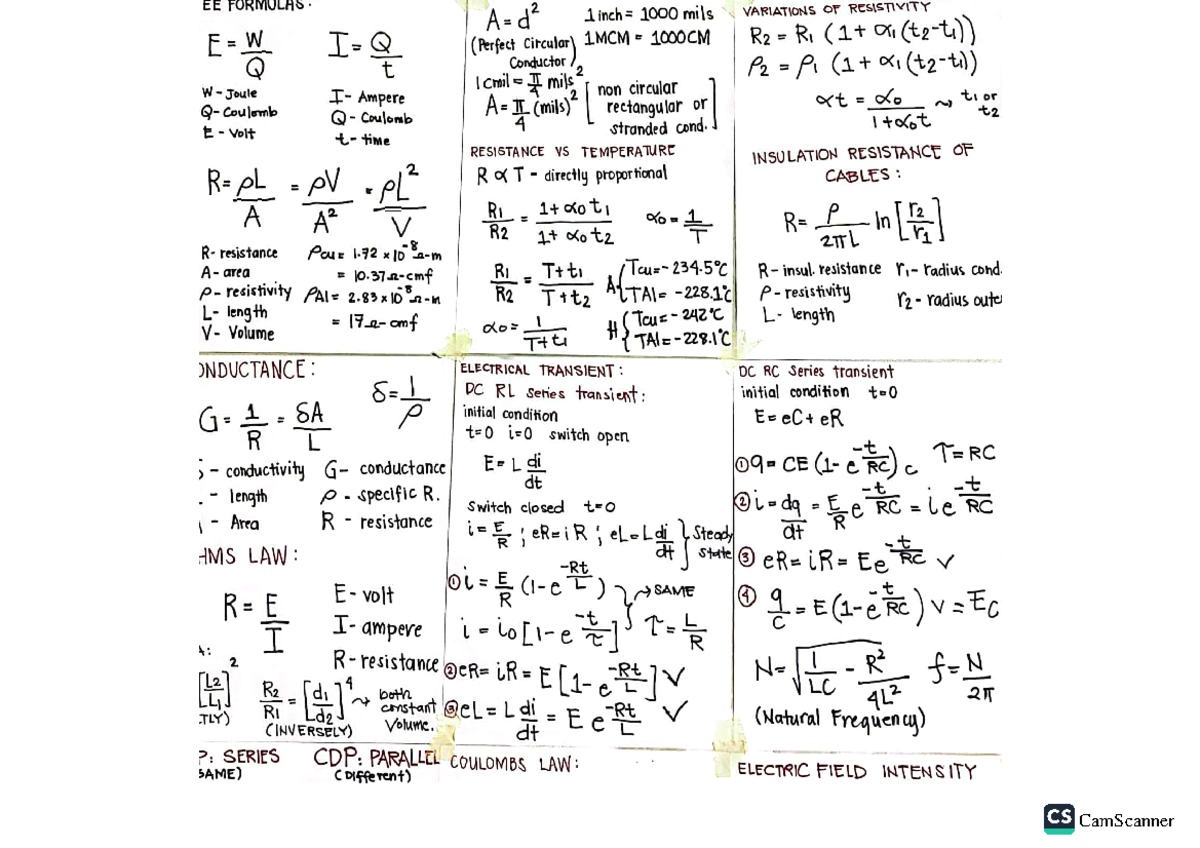 EE FORMULAS.
E = W/Q I = Q/t
W - Joule
Q - Coulomb
E - Volt
I - Ampere
Q - Coulomb
t - time
R = ρL/A = ρV/A² = ρL²/V
R - resistance
A - area
ρ - resistivity
L - length
V - Volume
ρcu = 1.72 x 10⁻⁸ Ω-m
= 10.37 Ω-cmf
ρAl = 2.83 x 10⁻⁸ Ω-m
= 17 Ω-cmf
A = d²
(Perfect Circular
Conductor)
1 inch = 1000 mils
1 MCM = 1000 CM
1 Cmil = π/4 mils²
A = π/4 (mils)²
[non circular
rectangular or
stranded cond.]
RESISTANCE VS TEMPERATURE
R ∝ T - directly proportional
R1/R2 = 1 + ∝0 t1 / 1 + ∝0 t2 ∝0 = 1/T
R1/R2 = T + t1 / T + t2
A { Tcu = -234.5°C
TAl = -228.1°C
∝0 = 1/T + t1
H { Tcu = -242°C
TAl = -228.1°C
VARIATIONS OF RESISTIVITY
R2 = R1 (1 + ∝1 (t2 - t1))
ρ2 = ρ1 (1 + ∝1 (t2 - t1))
∝t = ∝0 / 1 + ∝0t ⤳ t1 or t2
INSULATION RESISTANCE OF
CABLES:
R = ρ/2πL ln [r2/r1]
R - insul. resistance r1 - radius cond.
ρ - resistivity r2 - radius oute
L - length
ONDUCTANCE:
δ = 1/ρ
G = 1/R = δA/L
- conductivity G - conductance
- length ρ - specific R.
- Area R - resistance
HMS LAW:
R = E/I
E - volt
I - ampere
R - resistance
[L2/L1]²
TLY)
R2/R1 = [d1/d2]⁴ ⤳ both
constant
Volume.
(INVERSELY)
P: SERIES
SAME)
CDP: PARALLEL
(Different)
ELECTRICAL TRANSIENT:
DC RL series transient:
initial condition
t=0 i=0 switch open
E = L di/dt
Switch closed t=0
i = E/R ; eR = iR ; eL = L di/dt } Steady
State
① i = E/R (1 - e^-Rt/L)
→ SAME
i = i0 [1 - e^-t/τ] τ = L/R
② eR = iR = E [1 - e^-Rt/L] V
③ eL = L di/dt = E e^-Rt/L V
COULOMBS LAW:
DC RC Series transient
initial condition t=0
E = eC + eR
① q = CE (1 - e^-t/RC) C τ = RC
② i = dq/dt = E/R e^-t/RC = i e^-t/RC
③ eR = iR = E e^-t/RC V
④ q/C = E (1 - e^-t/RC) V = EC
N = √(1/LC - R²/4L²) f = N/2π
(Natural Frequency)
ELECTRIC FIELD INTENSITY
CS CamScanner